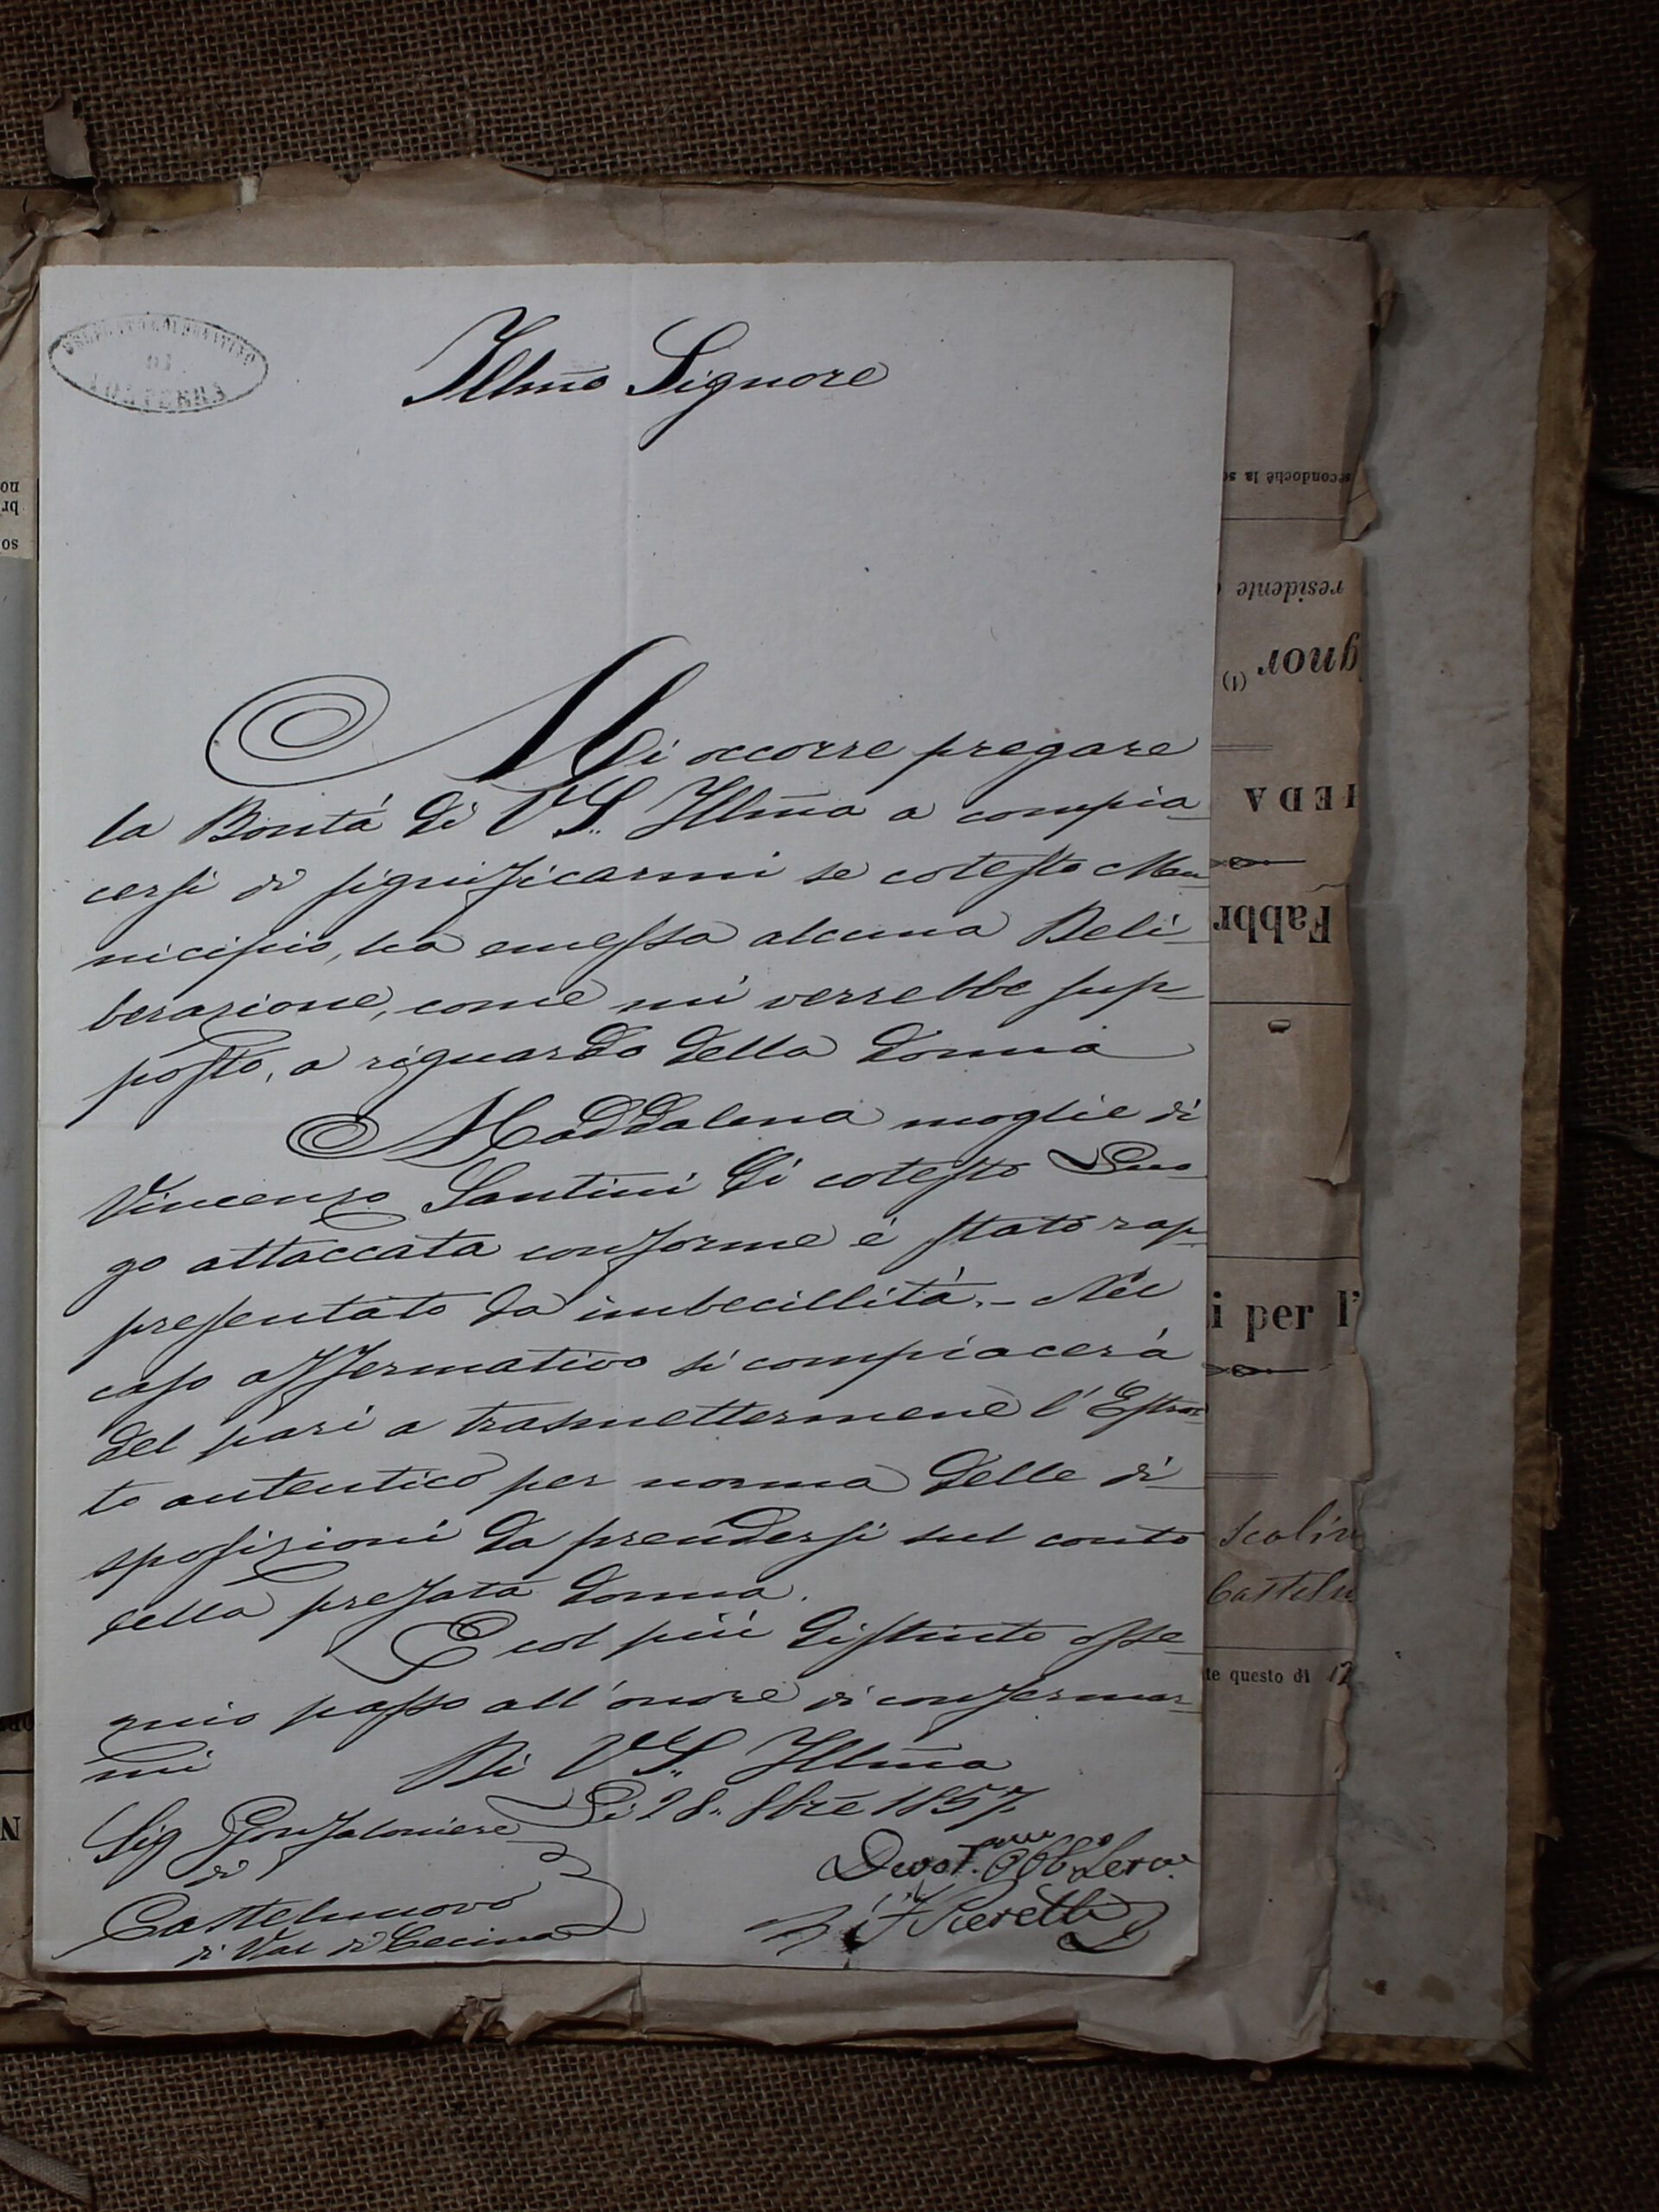 DELEGATO GOVERNATIVO
DI
VOLTERRA
Illmo Signore
Mi occorre pregare
la Bontà di VS. Illma a compia-
cersi di significarmi se cotesto Mu-
nicipio, ha emessa alcuna Deli-
berazione, come mi verrebbe sup-
posto, a riguardo della donna
Maddalena moglie di
Vincenzo Santini di cotesto Luo-
go attaccata conforme è stato rap-
presentato da imbecillità. - Nel
caso affermativo si compiacerà
del pari a trasmettermene l'Estrat-
to autentico per norma delle di-
sposizioni da prendersi sul conto
della prefata donna.
E col più distinto osse-
quio passo all'onore di confermar-
mi
Di VS. Illma
Li 28. 8bre 1857.
Sig Gonfaloniere
di
Castelnuovo
di Val di Cecina
Devot. Obb Serv.
Pieretti
secondochè la s
residente
gnor (1)
FEDA
Fabbr
i per l'
Scolin
Casteln
te questo di 17
no
br
so
N